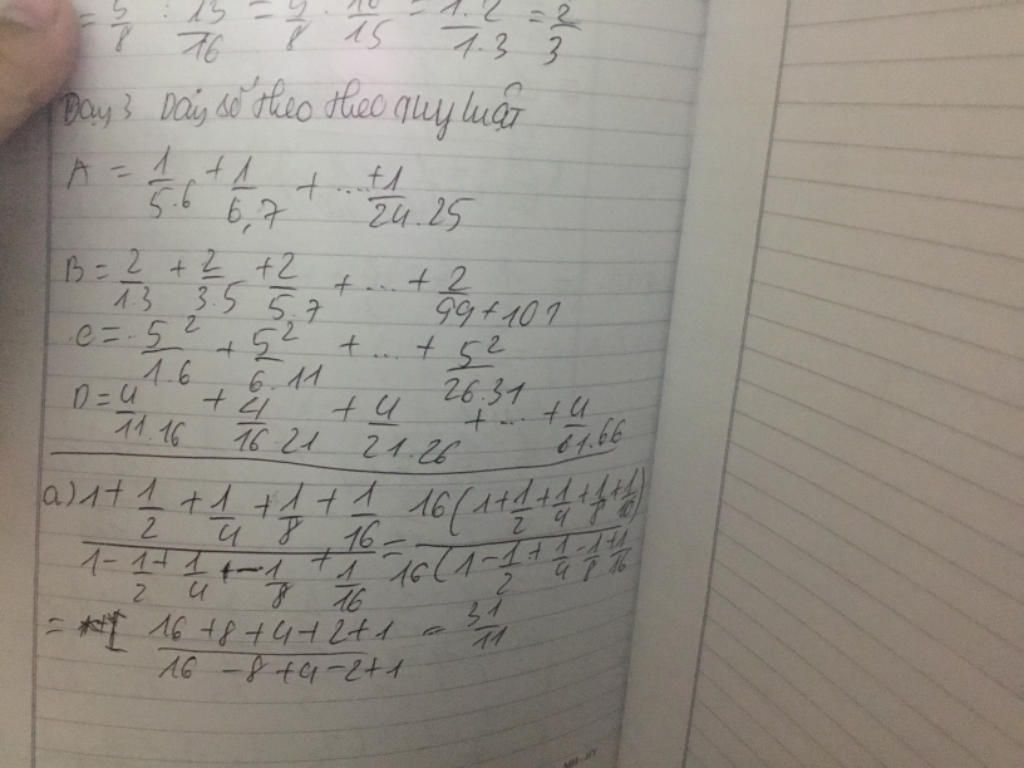 = 5/8 : 15/16 = 5/8 . 16/15 = 1.2/1.3 = 2/3
Dạng 3 Dãy số theo theo quy luật
A = 1/5.6 + 1/6,7 + ... + 1/24.25
B = 2/1.3 + 2/3.5 + 2/5.7 + ... + 2/99+101
C = 5²/1.6 + 5²/6.11 + ... + 5²/26.31
D = 4/11.16 + 4/16.21 + 4/21.26 + ... + 4/61.66
a) (1 + 1/2 + 1/4 + 1/8 + 1/16)/(1 - 1/2 + 1/4 - 1/8 + 1/16) = 16(1 + 1/2 + 1/4 + 1/8 + 1/16)/16(1 - 1/2 + 1/4 - 1/8 + 1/16
= (16 + 8 + 4 + 2 + 1)/(16 - 8 + 4 - 2 + 1) = 31/11